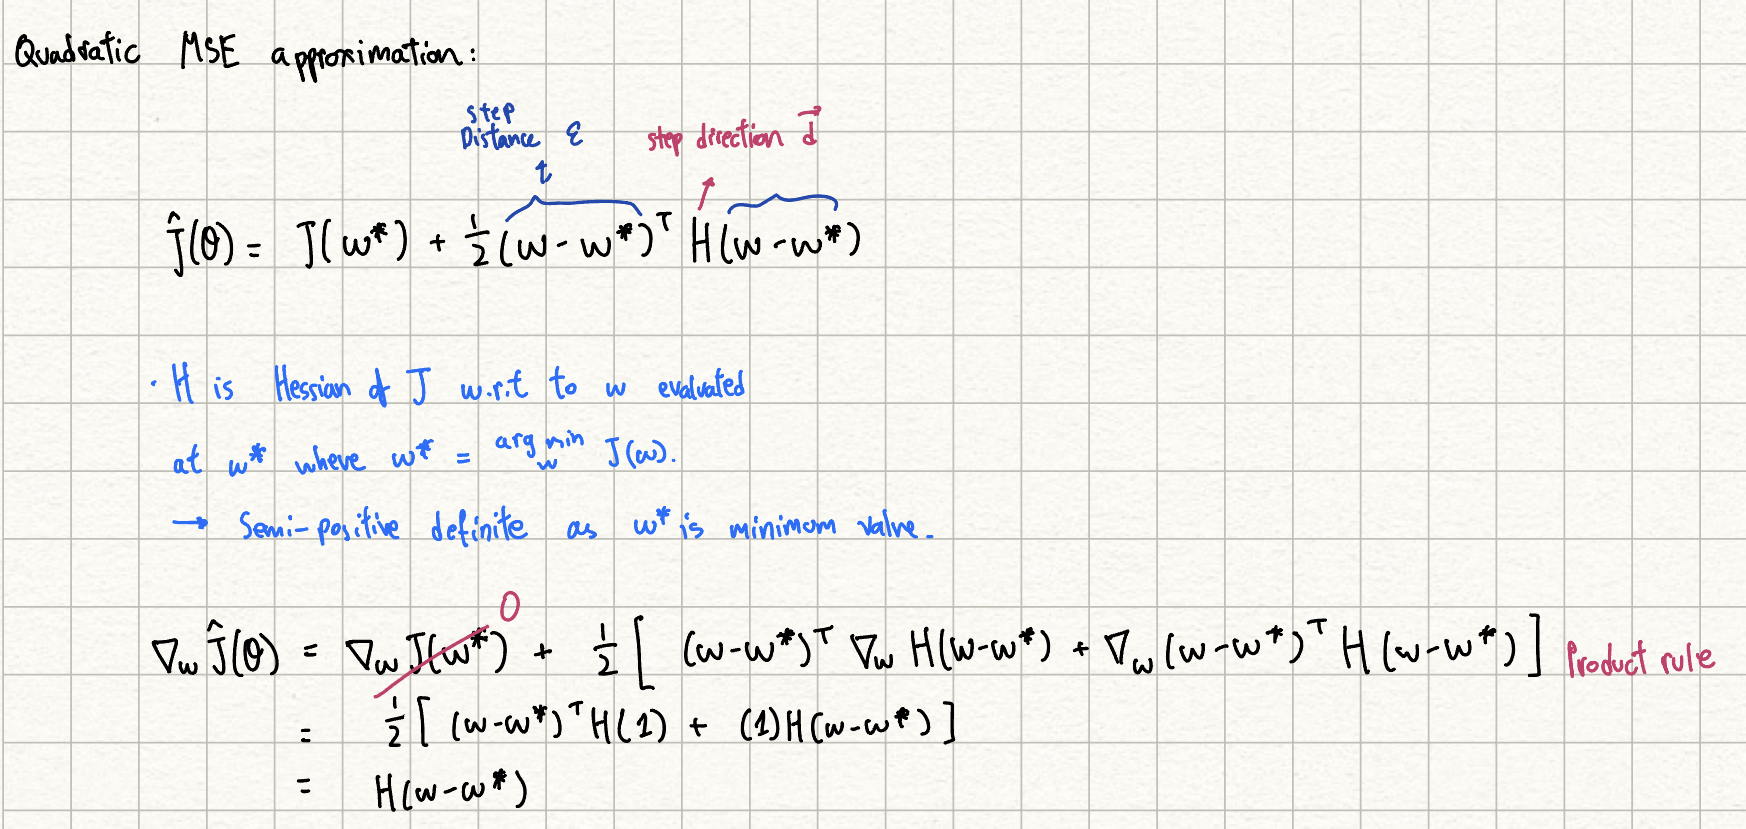 Quadratic MSE approximation:
step
Distance ε
step direction d⃗
Ĵ(θ) = J(w*) + ½(w - w*)ᵀ H(w - w*)
· H is Hessian of J w.r.t to w evaluated
at w* where w* = arg min_w J(w).
→ Semi-positive definite as w* is minimum value.
0
∇_w Ĵ(θ) = ∇_w J(w*) + ½[ (w-w*)ᵀ ∇_w H(w-w*) + ∇_w (w-w*)ᵀ H(w-w*) ] Product rule
= ½[ (w-w*)ᵀ H(1) + (1)H(w-w*) ]
= H(w-w*)